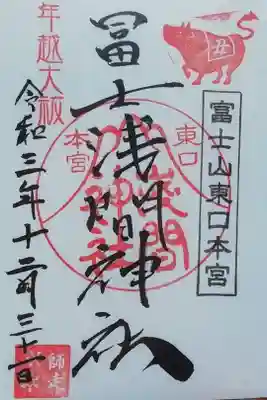 丑
富士山東口本宮
東口
冨士浅間神社
本宮
年越大祓
令和三年十二月三十一日
師走